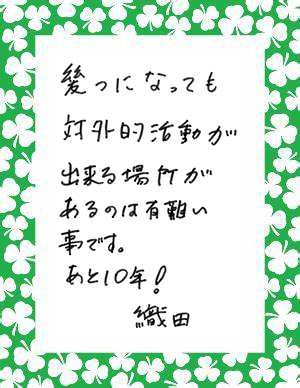 幾つになっても
対外的活動が
出来る場所が
あるのは有難い
事です。
あと10年!
織田